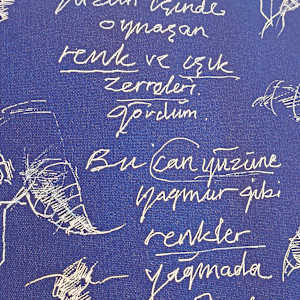 yüzün içinde
oynaşan
renk ve ışık
zerreleri
gördüm.
Bu can yüzüne
yağmur gibi
renkler
yağmada